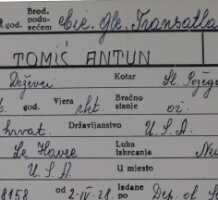 Brod. poduzećem Cie. Gle. Transatla
god.
TOMIĆ ANTUN
Kotar Sl. Požega
god. Vjera rkt. Bračno stanje ož.
hrvat. Državljanstvo U.S.A.
Le Havre Luka iskrcanja
U.S.A. U mjesto
8158 od 2-IV-28. Izdane po Dep. of St